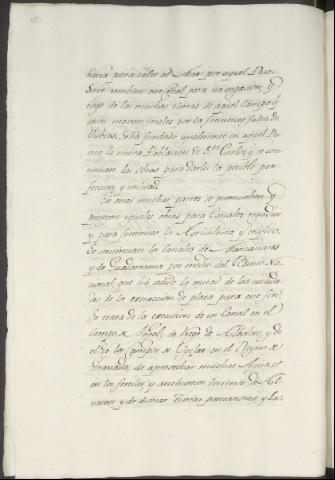 havia para salir al Mar por aquel Puer
Sirve tambien ese canal para navegacion, y
riego de las muchas tierras de aquel Campo,
antes infructiferas por la frecuente falta de
llubias. Se há fundado igualmente en aquel Pu
la nueva Poblacion de Sn. Carlos, y se con
tinuan las obras para darles la posible per
feccion, y utilidad.
En otras muchas partes se promueben, y
proyectan iguales obras para Canales, regadios
y para fomentar la Agricultura y trafico.
Se continuan los Canales de Manzanares
y de Guadarrama por medio del Banco Na
cional, que há cedido la mitad de las utilida
des de la extraccion de plata para este fin.
Se trata de la execucion de un Canal en el
Campo de Urgel, de riego de Albacete, y de
el de los Campos de Ugijar en el Reyno de
Granada, de aprovechar muchas Aguas
en los fertiles, y anchurosos terrenos de Al
vacete, y de disecar tierras pantanosas, y la